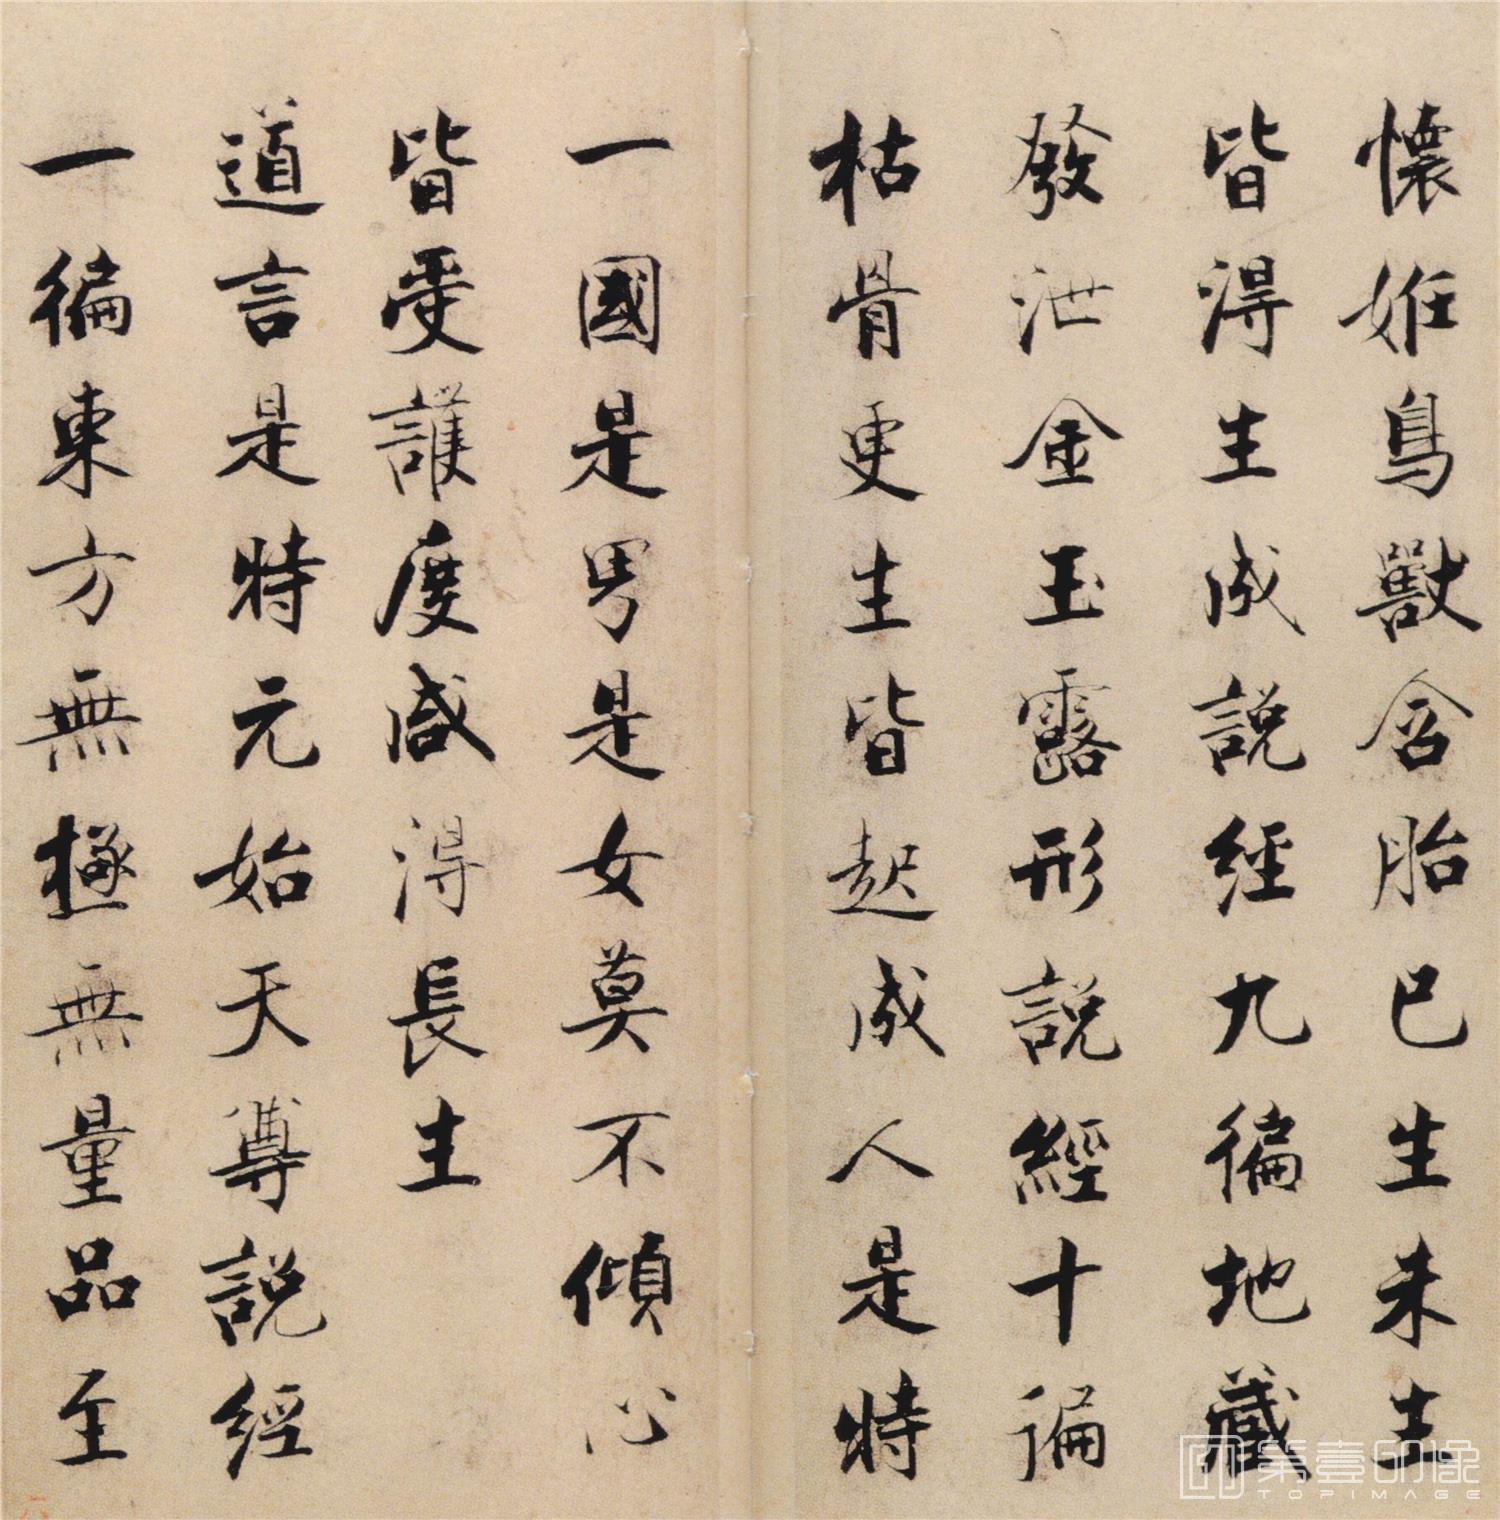 懷姙鳥獸含胎已生未生
皆得生成說經九徧地藏
發泄金玉露形說經十徧
枯骨更生皆起成人是時
一國是男是女莫不傾心
皆受護度咸得長生
道言是時元始天尊說經
一徧東方無極無量品至
第壹印像
TOPIMAGE